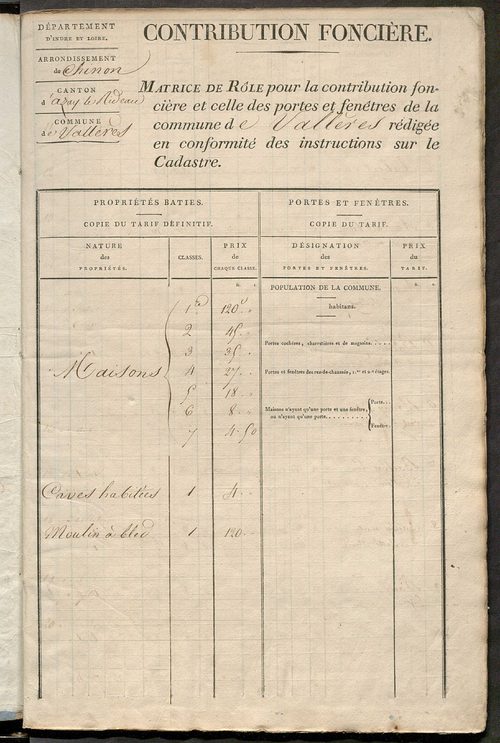 DÉPARTEMENT
D'INDRE ET LOIRE.
ARRONDISSEMENT
de Chinon
CANTON
d'azay le Rideau
COMMUNE
de Vallères
CONTRIBUTION FONCIÈRE.
MATRICE DE RÔLE pour la contribution fon-
cière et celle des portes et fenêtres de la
commune de Vallères rédigée
en conformité des instructions sur le
Cadastre.
PROPRIÉTÉS BATIES.
COPIE DU TARIF DÉFINITIF.
PORTES ET FENÊTRES.
COPIE DU TARIF.
NATURE
des
PROPRIÉTÉS.
CLASSES.
PRIX
de
CHAQUE CLASSE.
DÉSIGNATION
des
PORTES ET FENÊTRES.
PRIX
du
TARIF.
POPULATION DE LA COMMUNE.
habitans.
Maisons
1re 120 f
2 45
3 35
4 27
5 18
6 8
7 4 50
Portes cochères, charretières et de magasins.....
Portes et fenêtres des rez-de-chaussée, 1.er et 2.e étages.
Maisons n'ayant qu'une porte et une fenêtre,
ou n'ayant qu'une porte.........
Porte...
Fenêtre.
Caves habitées 1 4
Moulin à bled 1 120